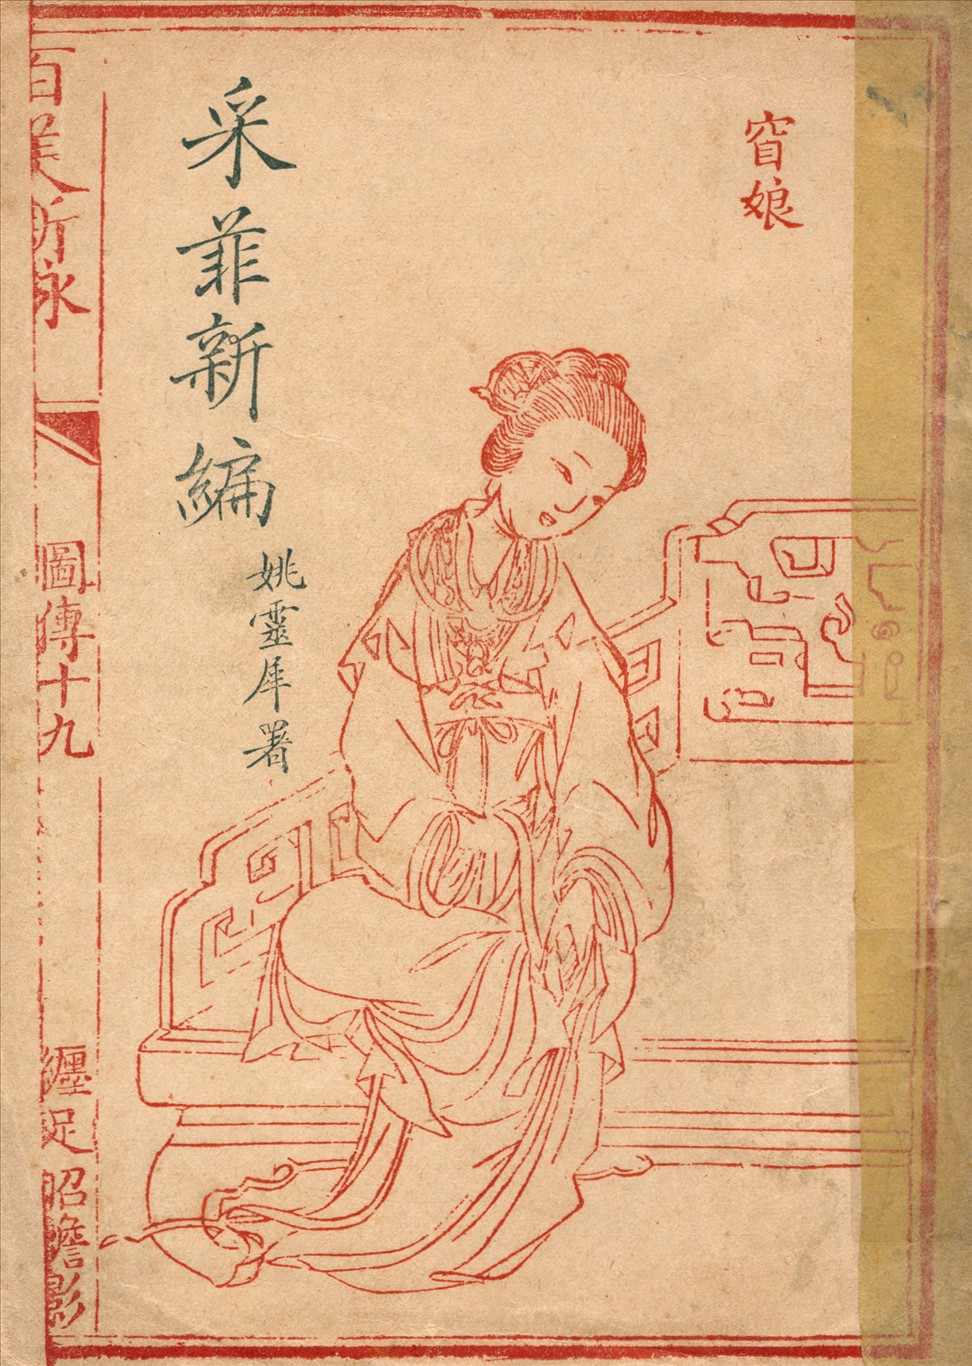 窅娘
采菲新編
姚靈犀署
百美新咏
圖傳十九
纏足
昭澹影